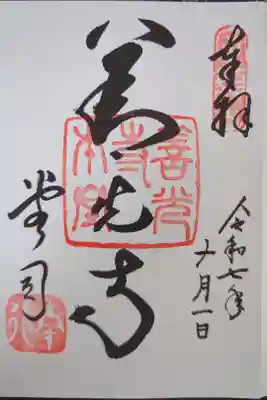 奉拝
令和七年
十月一日
善光寺
堂司
善光
寺
本堂